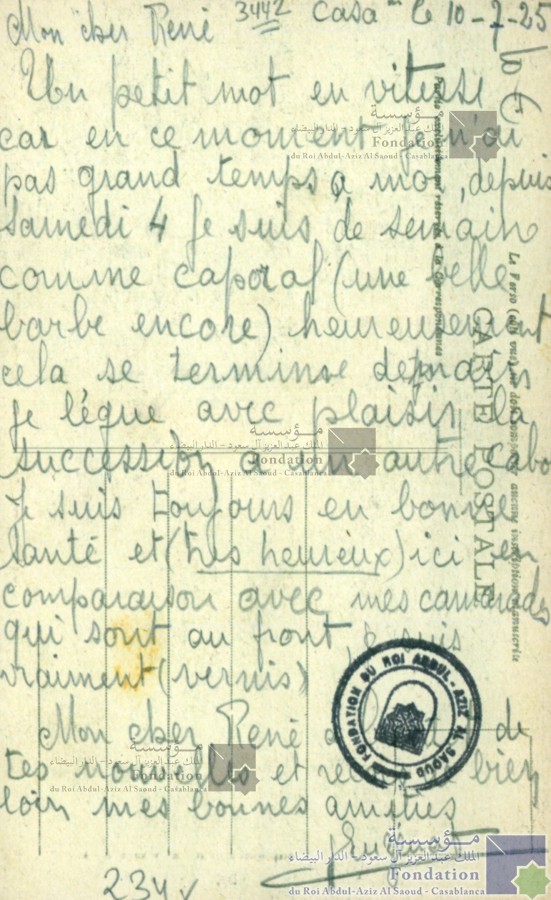 3442 Casa le 10-7-25
Mon cher René
Un petit mot en vitesse
car en ce moment je n'ai
pas grand temps à moi, depuis
samedi 4 je suis de semaine
comme caporal (une belle
barbe encore) heureusement
cela se termine
je lègue avec plaisir la
succession à un autre cabo
Je suis toujours en bonne
santé et (très heureux) ici en
comparaison avec mes camarades
qui sont au front, je suis
vraiment (vernis)
Mon cher René de
tes nouvelles et bien
loin mes bonnes amitiés
234
CARTE POSTALE
مؤسسة
الملك عبد العزيز آل سعود - الدار البيضاء
Fondation
du Roi Abdul-Aziz Al Saoud - Casablanca
مؤسسة
الملك عبد العزيز آل سعود - الدار البيضاء
Fondation
du Roi Abdul-Aziz Al Saoud - Casablanca
مؤسسة
الملك عبد العزيز آل سعود - الدار البيضاء
Fondation
du Roi Abdul-Aziz Al Saoud - Casablanca
FONDATION DU ROI ABDUL-AZIZ AL SAOUD
مؤسسة
الملك عبد العزيز آل سعود - الدار البيضاء
Fondation
du Roi Abdul-Aziz Al Saoud - Casablanca